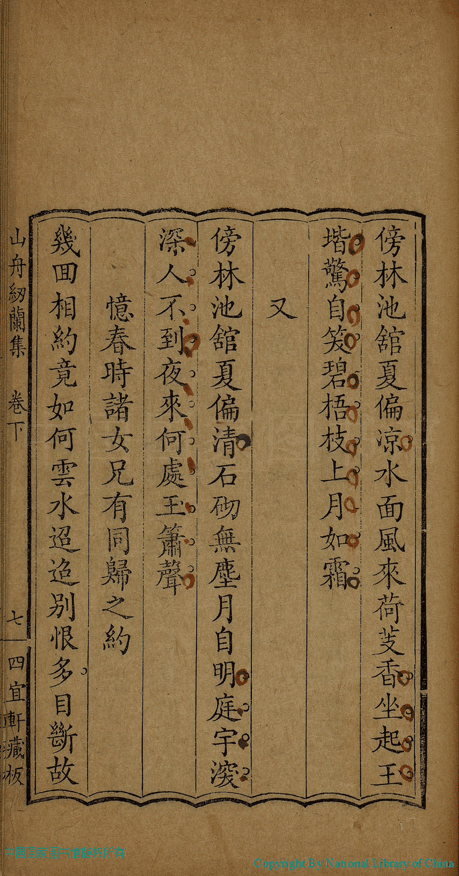 傍林池舘夏偏凉水面風來荷芰香坐起王
堦驚自笑碧梧枝上月如霜
又
傍林池舘夏偏清石砌無塵月自明庭宇深
深人不到夜來何處王簫聲
憶春時諸女兄有同歸之約
幾囬相約竟如何雲水迢迢别恨多目斷故
山舟紉蘭集 卷下 七 四宜軒藏板
Copyright By National Library of China